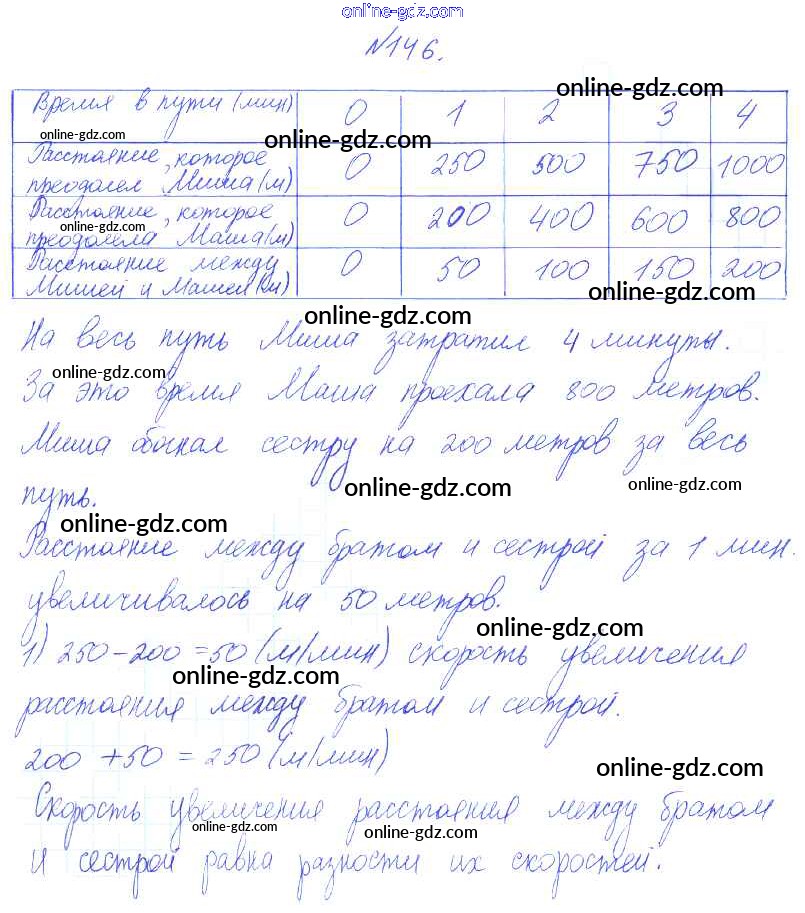 online-gdz.com
№146.
online-gdz.com
Время в пути (мин) 0 1 2 3 4
online-gdz.com online-gdz.com
Расстояние, которое
преодолел Миша (м) 0 250 500 750 1000
Расстояние, которое
online-gdz.com
преодолела Маша (м) 0 200 400 600 800
Расстояние между
Мишей и Машей (м) 0 50 100 150 200
online-gdz.com
online-gdz.com
На весь путь Миша затратил 4 минуты.
online-gdz.com
За это время Маша проехала 800 метров.
Миша обогнал сестру на 200 метров за весь
путь.
online-gdz.com online-gdz.com
online-gdz.com
Расстояние между братом и сестрой за 1 мин.
увеличивалось на 50 метров.
online-gdz.com
1) 250-200=50 (м/мин) скорость увеличения
online-gdz.com
расстояния между братом и сестрой.
200+50=250 (м/мин)
online-gdz.com
Скорость увеличения расстояния между братом
online-gdz.com online-gdz.com
и сестрой равна разности их скоростей.